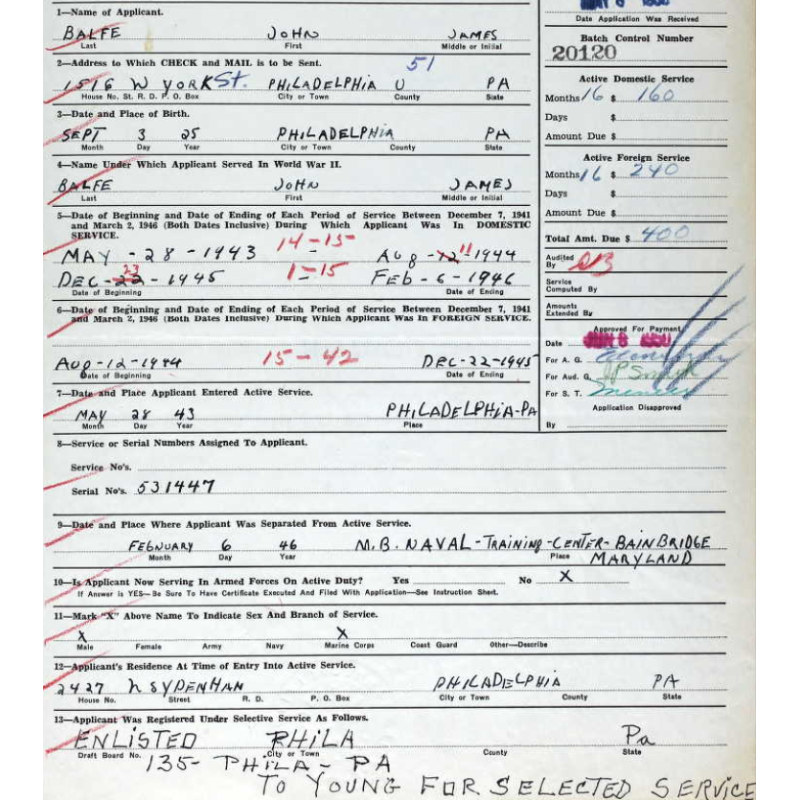 1—Name of Applicant.
BALFE JOHN JAMES
Last First Middle or Initial
2—Address to Which CHECK and MAIL is to be Sent. 51
1516 W YORK St. PHILADELPHIA U PA
House No. St. R. D. P. O. Box City or Town County State
3—Date and Place of Birth.
SEPT 3 25 PHILADELPHIA PA
Month Day Year City or Town County State
4—Name Under Which Applicant Served In World War II.
BALFE JOHN JAMES
Last First Middle or Initial
5—Date of Beginning and Date of Ending of Each Period of Service Between December 7, 1941
and March 2, 1946 (Both Dates Inclusive) During Which Applicant Was In DOMESTIC
SERVICE.
MAY - 28 - 1943 14-15 AUG - 12 11 - 1944
DEC - 22 23 - 1945 1-15 FEB - 6 - 1946
Date of Beginning Date of Ending
6—Date of Beginning and Date of Ending of Each Period of Service Between December 7, 1941
and March 2, 1946 (Both Dates Inclusive) During Which Applicant Was In FOREIGN SERVICE.
AUG - 12 - 1944 15-42 DEC - 22 - 1945
Date of Beginning Date of Ending
7—Date and Place Applicant Entered Active Service.
MAY 28 43 PHILADELPHIA-PA
Month Day Year Place
8—Service or Serial Numbers Assigned To Applicant.
Service No's.
Serial No's. 531447
9—Date and Place Where Applicant Was Separated From Active Service.
FEBNUARY 6 46 M.B. NAVAL-TRAINING-CENTER-BAINBRIDGE
Month Day Year Place MARYLAND
10—Is Applicant Now Serving In Armed Forces On Active Duty? Yes No X
If Answer is YES—Be Sure To Have Certificate Executed And Filed With Application—See Instruction Sheet.
11—Mark "X" Above Name To Indicate Sex And Branch of Service.
X X
Male Female Army Navy Marine Corps Coast Guard Other—Describe
12—Applicant's Residence At Time of Entry Into Active Service.
2427 N SYDENHAN PHILADELPHIA PA
House No. Street R. D. P. O. Box City or Town County State
13—Applicant Was Registered Under Selective Service As Follows.
ENLISTED PHILA Pa
Draft Board No. City or Town County State
135- PHILA - PA
TO YOUNG FOR SELECTED SERVICE
Date Application Was Received
Batch Control Number
20120
Active Domestic Service
Months 16 $ 160
Days $
Amount Due $
Active Foreign Service
Months 16 $ 240
Days $
Amount Due $
Total Amt. Due $ 400
Audited
By
Service
Computed By
Amounts
Extended By
Approved For Payment
Date
For A. G.
For Aud. G.
For S. T.
Application Disapproved
By